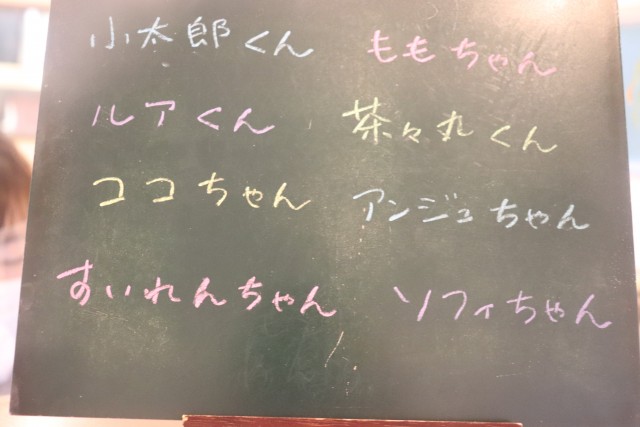 小太郎くん ももちゃん
ルアくん 茶々丸くん
ココちゃん アンジュちゃん
すいれんちゃん ソフィちゃん